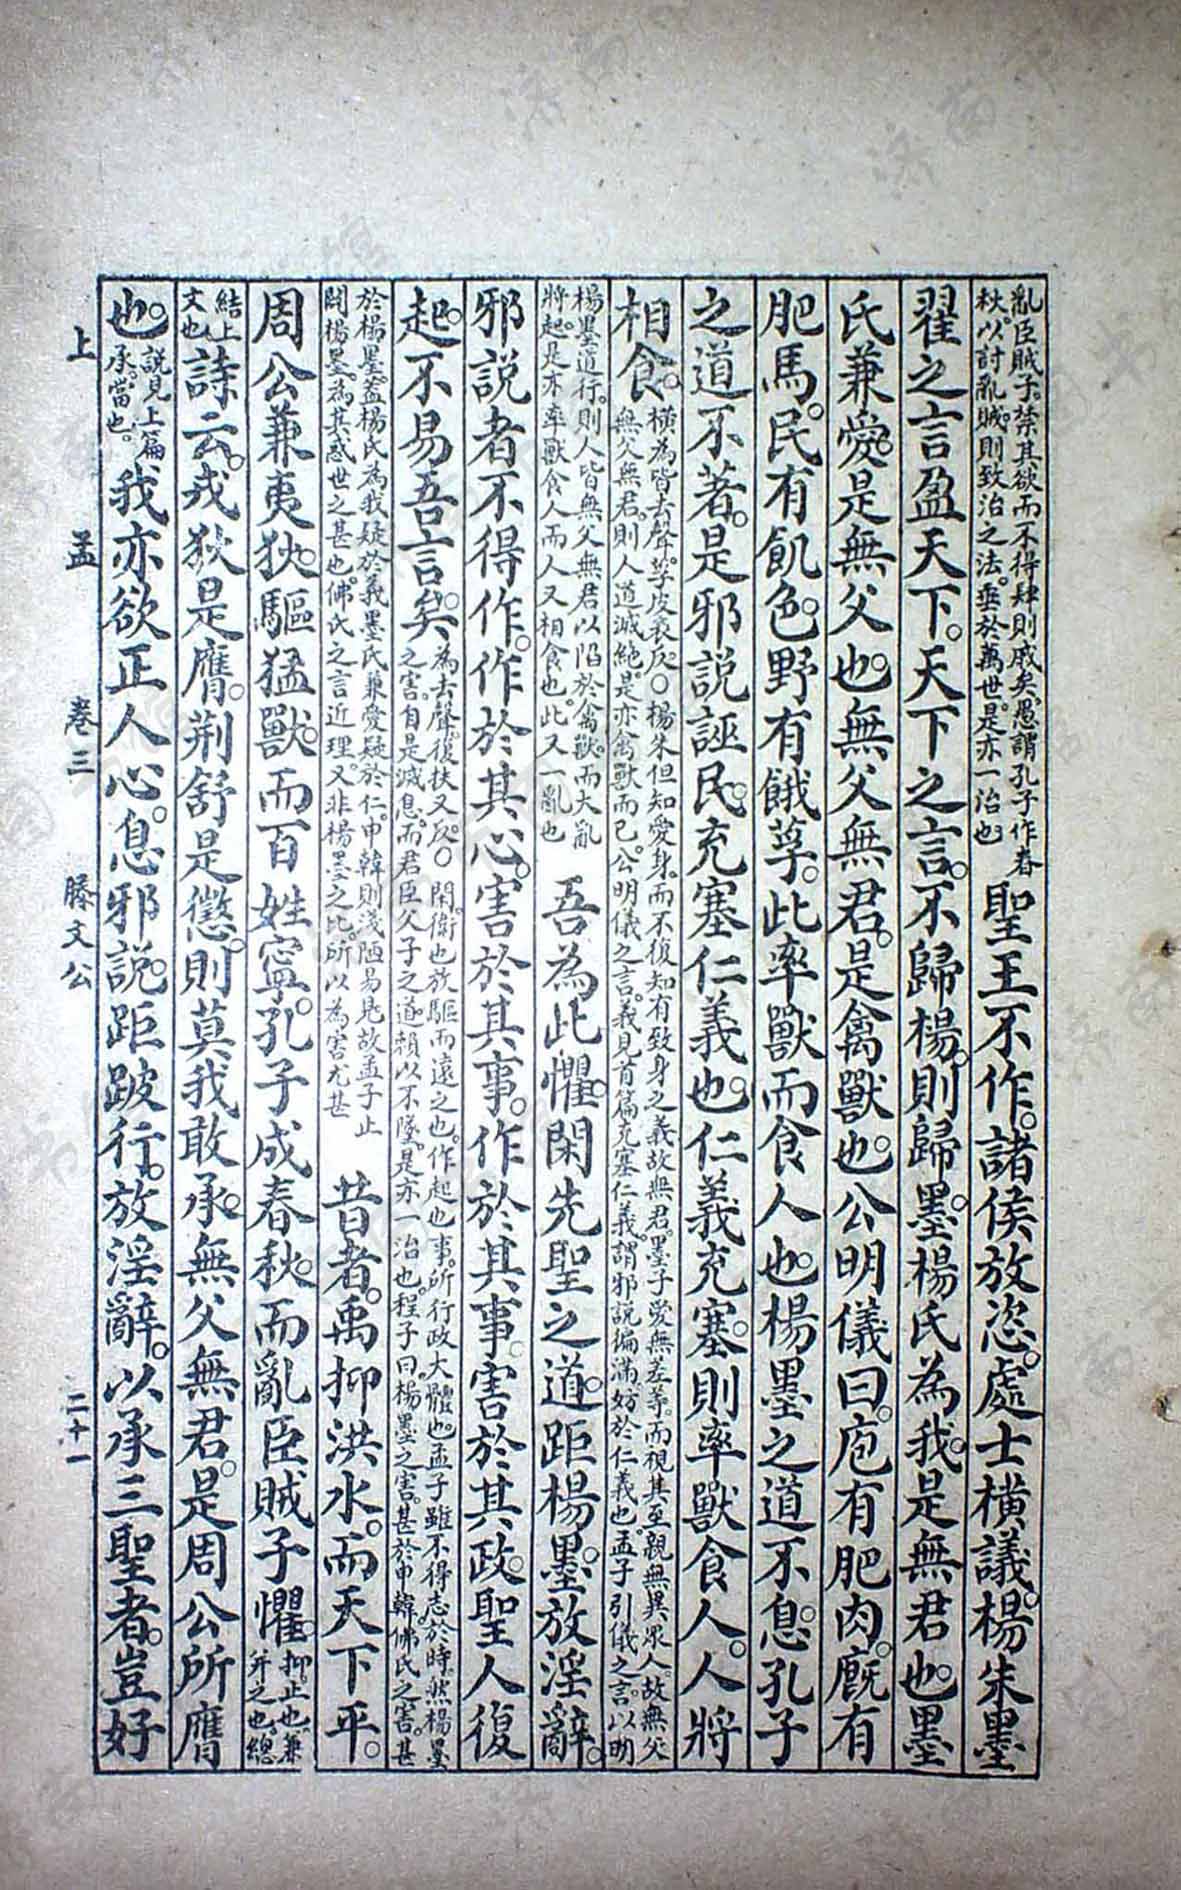 亂臣賊子。禁其欲而不得肆則戚矣。愚謂孔子作春
秋以討亂賊。則致治之法。垂於萬世。是亦一治也
聖王不作。諸侯放恣。處士橫議。楊朱墨
翟之言盈天下。天下之言。不歸楊。則歸墨。楊氏為我。是無君也。墨
氏兼愛。是無父也。無父無君。是禽獸也。公明儀曰。庖有肥肉。廐有
肥馬。民有飢色。野有餓莩。此率獸而食人也。楊墨之道不息。孔子
之道不著。是邪說誣民。充塞仁義也。仁義充塞。則率獸食人。人將
相食。
橫為皆去聲。莩皮表反。○楊朱但知愛身。而不復知有致身之義。故無君。墨子愛無差等。而視其至親無異眾人。故無父
無父無君。則人道滅絕。是亦禽獸而已。公明儀之言。義見首篇。充塞仁義。謂邪說徧滿。妨於仁義也。孟子引儀之言。以明
楊墨道行。則人皆無父無君。以陷於禽獸。而大亂
將起。是亦率獸食人。而人又相食也。此又一亂也
吾為此懼。閑先聖之道。距楊墨。放淫辭。
邪說者不得作。作於其心。害於其事。作於其事。害於其政。聖人復
起。不易吾言矣。
為去聲。復扶又反。○閑。衛也。放。驅而遠之也。作。起也。事。所行。政。大體也。孟子雖不得志於時。然楊墨
之害。自是滅息。而君臣父子之道。賴以不墜。是亦一治也。程子曰。楊墨之害。甚於申韓。佛氏之害。甚
於楊墨。蓋楊氏為我疑於義。墨氏兼愛疑於仁。申韓則淺陋易見。故孟子止
闢楊墨。為其惑世之甚也。佛氏之言近理。又非楊墨之比。所以為害尤甚
昔者。禹抑洪水。而天下平。
周公兼夷狄。驅猛獸。而百姓寧。孔子成春秋。而亂臣賊子懼。
抑。止也。兼
并之也。總
結上
文也
詩云。戎狄是膺。荊舒是懲。則莫我敢承。無父無君。是周公所膺
也。
說見上篇
承。當也。
我亦欲正人心。息邪說。距跛行。放淫辭。以承三聖者。豈好
上 孟 卷三 滕文公 二十一